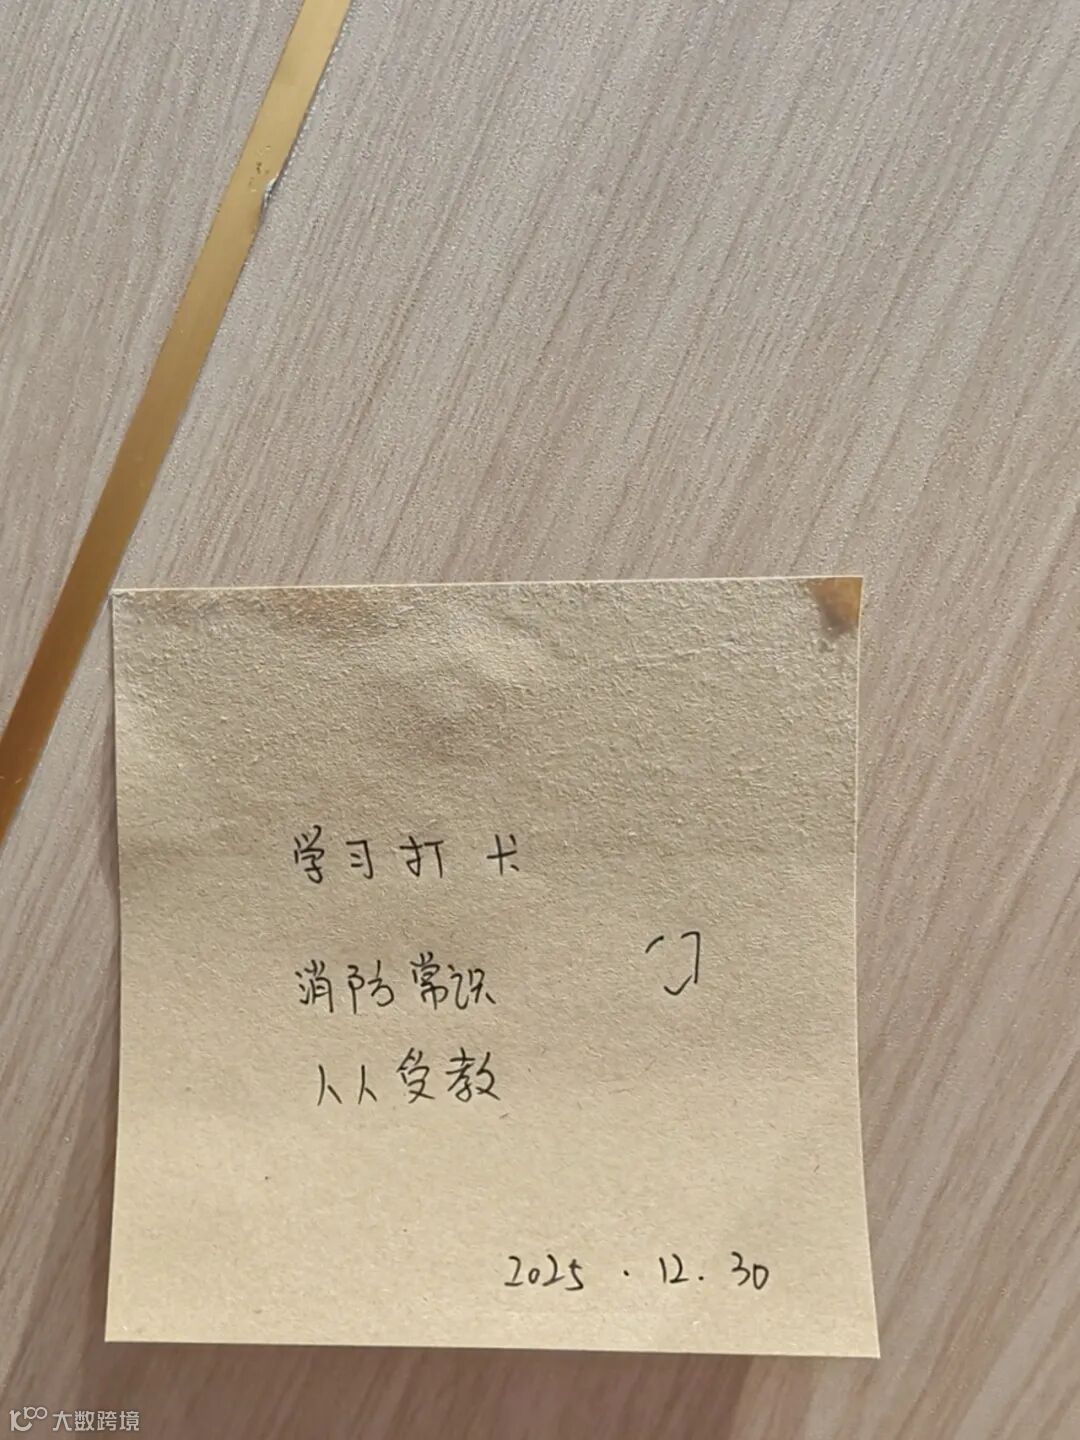 学习打卡
消防常识
人人受教
2025.12.30
大数跨境